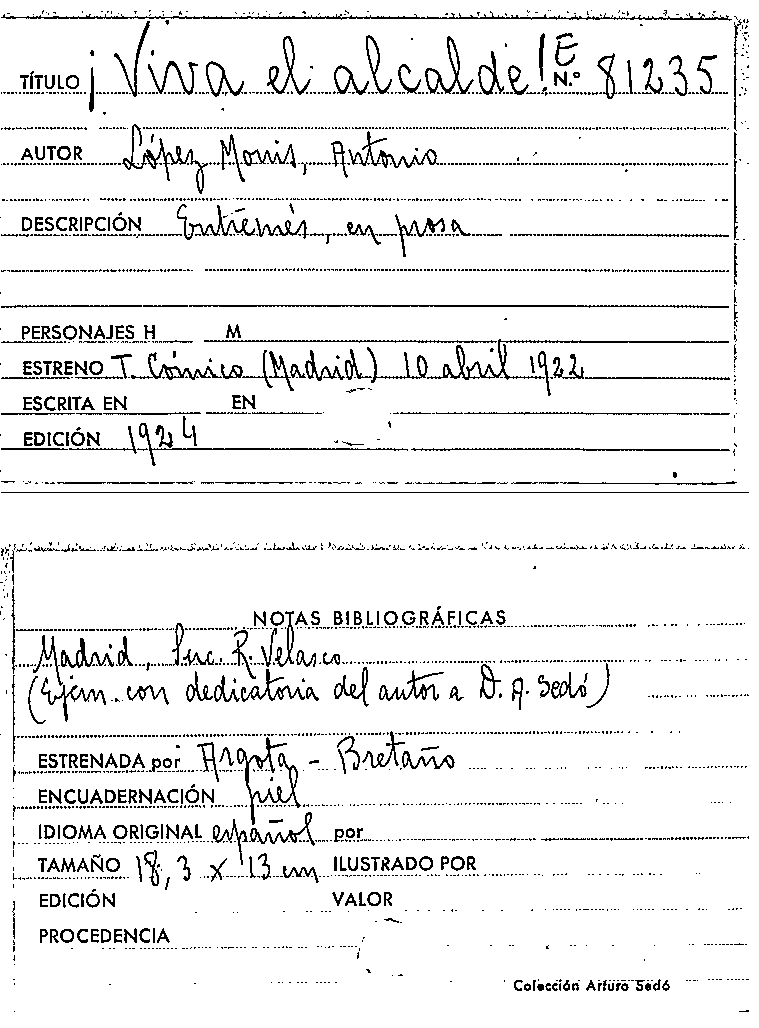 TÍTULO ¡Viva el alcalde! E N.º 81235
AUTOR López Monis, Antonio
DESCRIPCIÓN Entremés, en prosa
PERSONAJES H M
ESTRENO T. Cómico (Madrid) 10 abril 1922
ESCRITA EN EN
EDICIÓN 1924
NOTAS BIBLIOGRÁFICAS
Madrid, Suc. R. Velasco
(Ejem. con dedicatoria del autor a D. A. Sedó)
ESTRENADA por Argota - Bretaño
ENCUADERNACIÓN piel
IDIOMA ORIGINAL español por
TAMAÑO 18,3 x 13 cm ILUSTRADO POR
EDICIÓN VALOR
PROCEDENCIA
Colección Arturo Sedó